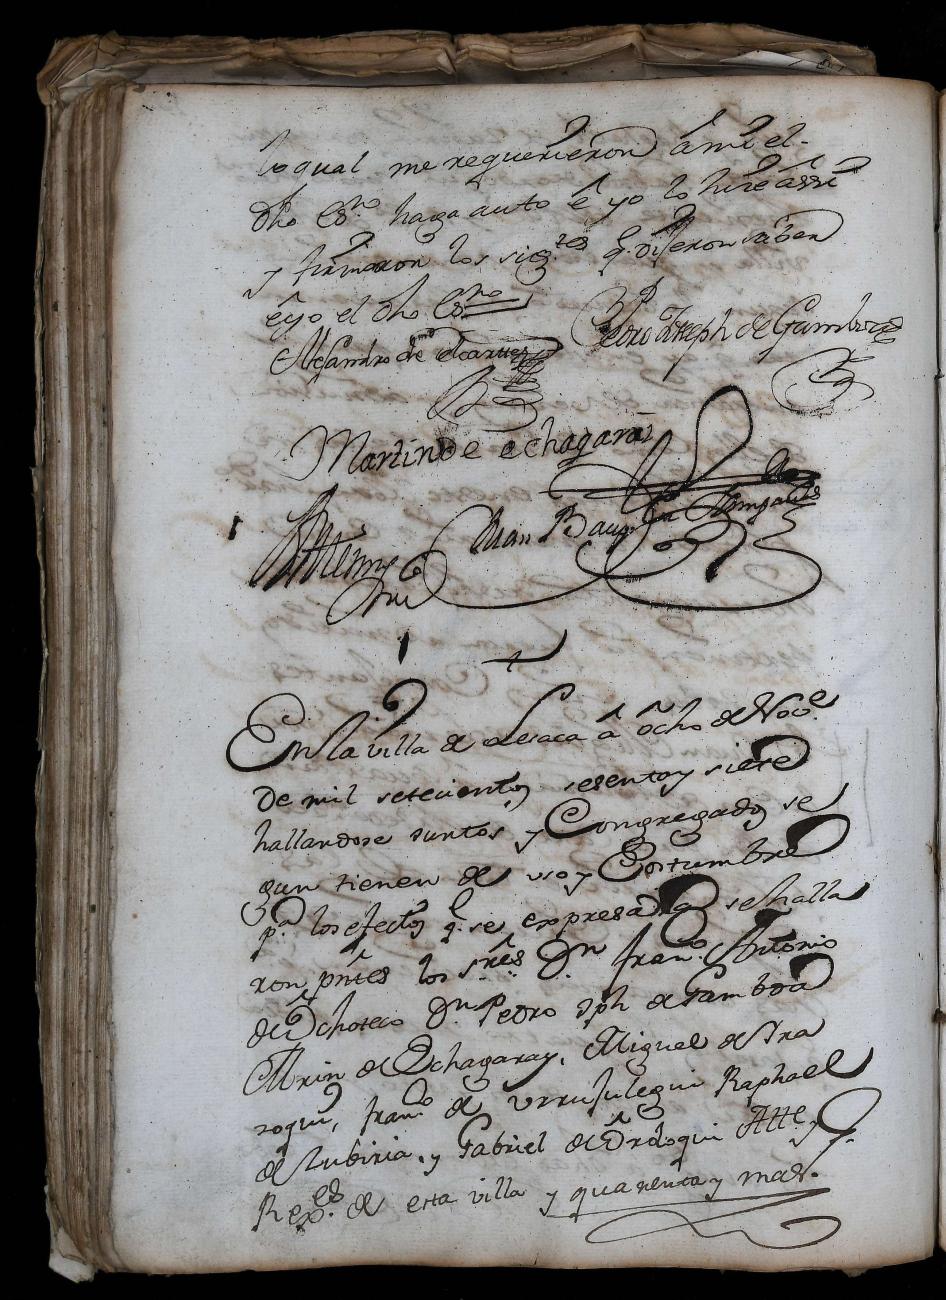 lo qual me requerieron â mi el
dho Ess.no haga auto ê yo lo hize âssi
y firmaron los sig.tes q. dijeron saber
êyo el dho Es.no
Pedro Joseph de Gambra
Alejandro de
Martin de echagarai
Juan Baup.ta
Ante mi
En la villa de Lesaca â ôcho de Nov.e
de mil setecientos sesentay siete
hallandose juntos y Congregados se
gun tienen de uso y Costumbre
p.a los efectos q. se expresarà se halla
ron pntes los S.res Dn Fran.co Antonio
de Echoteco Dn Pedro Jph de Gambra
Mrin de Echagaray, Miguel de Yra
zoqui, Fran.co de Urrusulegui Raphael
de Zubiria, y Gabriel de Ordoqui Alle y
Rex.es de esta villa y quarenta y mas.